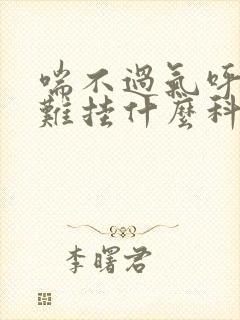 喘不過氣呼
難挂什麼科
李曙君